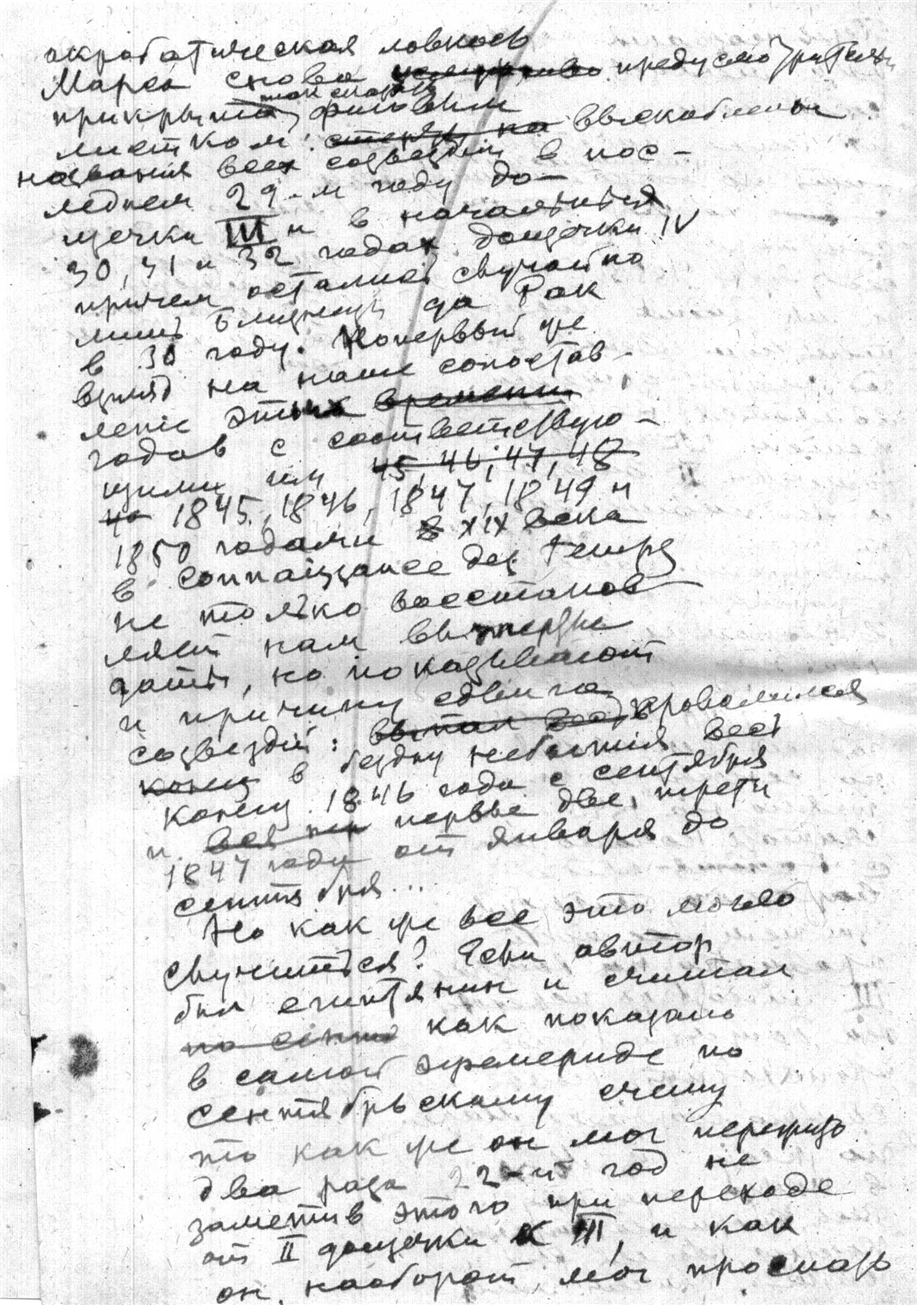 акробатическая ловкость
Марса снова предусмотрительно
прикрыта фиговым
листком: выскоблены
названия всех созвездий в пос-
леднем 29-м году до-
щечки III и в начальных
30, 31 и 32 годах дощечки IV
причем остались случайно
лишь Близнецы да Рак
в 30 году. Но первый же
взгляд на наше сопостав-
ление этих времени
годов с соответствую-
щими им 45, 46, 47, 48
1845, 1846, 1847, 1849 и
1850 годами в XIX века
в Connaissance des Temps
не только восстанов-
ляет нам
даты, но показывает
и причину сдвига
созвездий: провалился
конец в бездну небытия весь
конец 1846 года с сентября
и вся первые две трети
1847 года от января до
сентября...
Но как же все это могло
случиться? Если автор
был египтянин и считал
как показано
в самой эфемериде по
сентябрьскому счету
то как же он мог пережить
два раза 22-й год не
заметив этого при переходе
от II дощечки к III, и как
он, наоборот, мог проспать